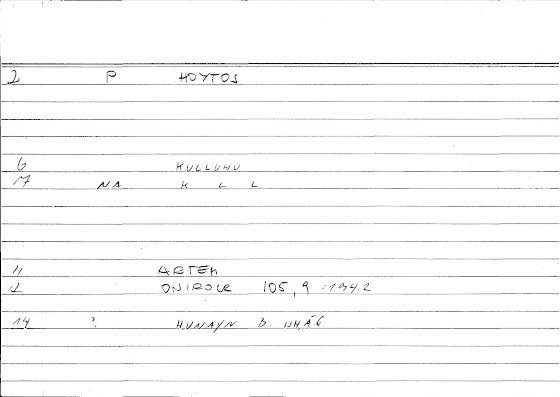 2 P HOYTOS
6 KULLUHU
17 NA K L L
11 ARTEM
12 ONIROCR 105, 9 = 194.2
14 ? HUNAYN B. ISHĀQ